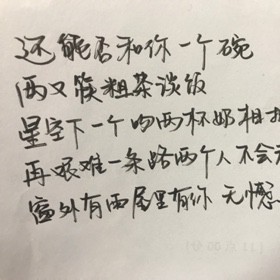 还能否和你一个碗
两又筷粗茶谈饭
星空下一个吻两杯奶相
再艰难一条路两个人不会
窗外有雨屋里有你 无憾